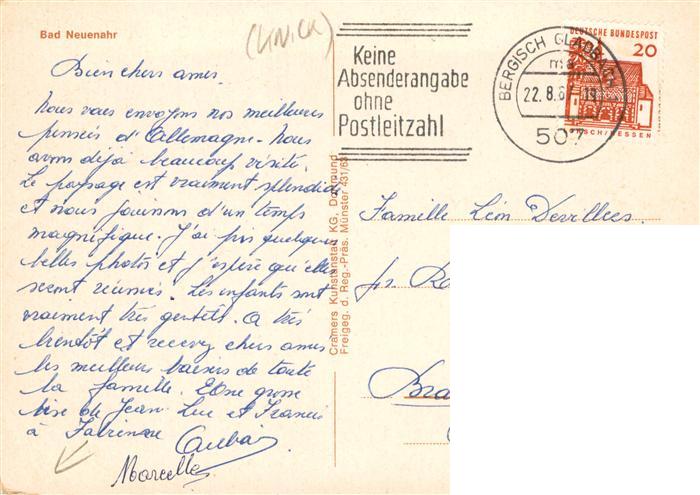 Bad Neuenahr
(KNICK)
Keine
Absenderangabe
ohne
Postleitzahl
BERGISCH GLADBACH
22.8.6
507
DEUTSCHE BUNDESPOST
20
LORSCH/HESSEN
Bien chers amis.
Nous vous envoyons nos meilleures
pensées d'Allemagne. Nous
avons déjà beaucoup visité.
Le paysage est vraiment splendide
et nous jouissons d'un temps
magnifique. J'ai pris quelques
belles photos et j'espère qu'elles
seront réussies. Les enfants sont
vraiment très gentils. A très
bientôt et recevez chers amis
les meilleurs baisers de toute
la famille. Une grosse
bise de Jean-Luc et Francis
à Fabienne
Marcelle
Cramers Kunstanstalt KG, Dortmund
Freigeg. d. Reg.-Präs. Münster 431/63
Famille Léon Devillers.